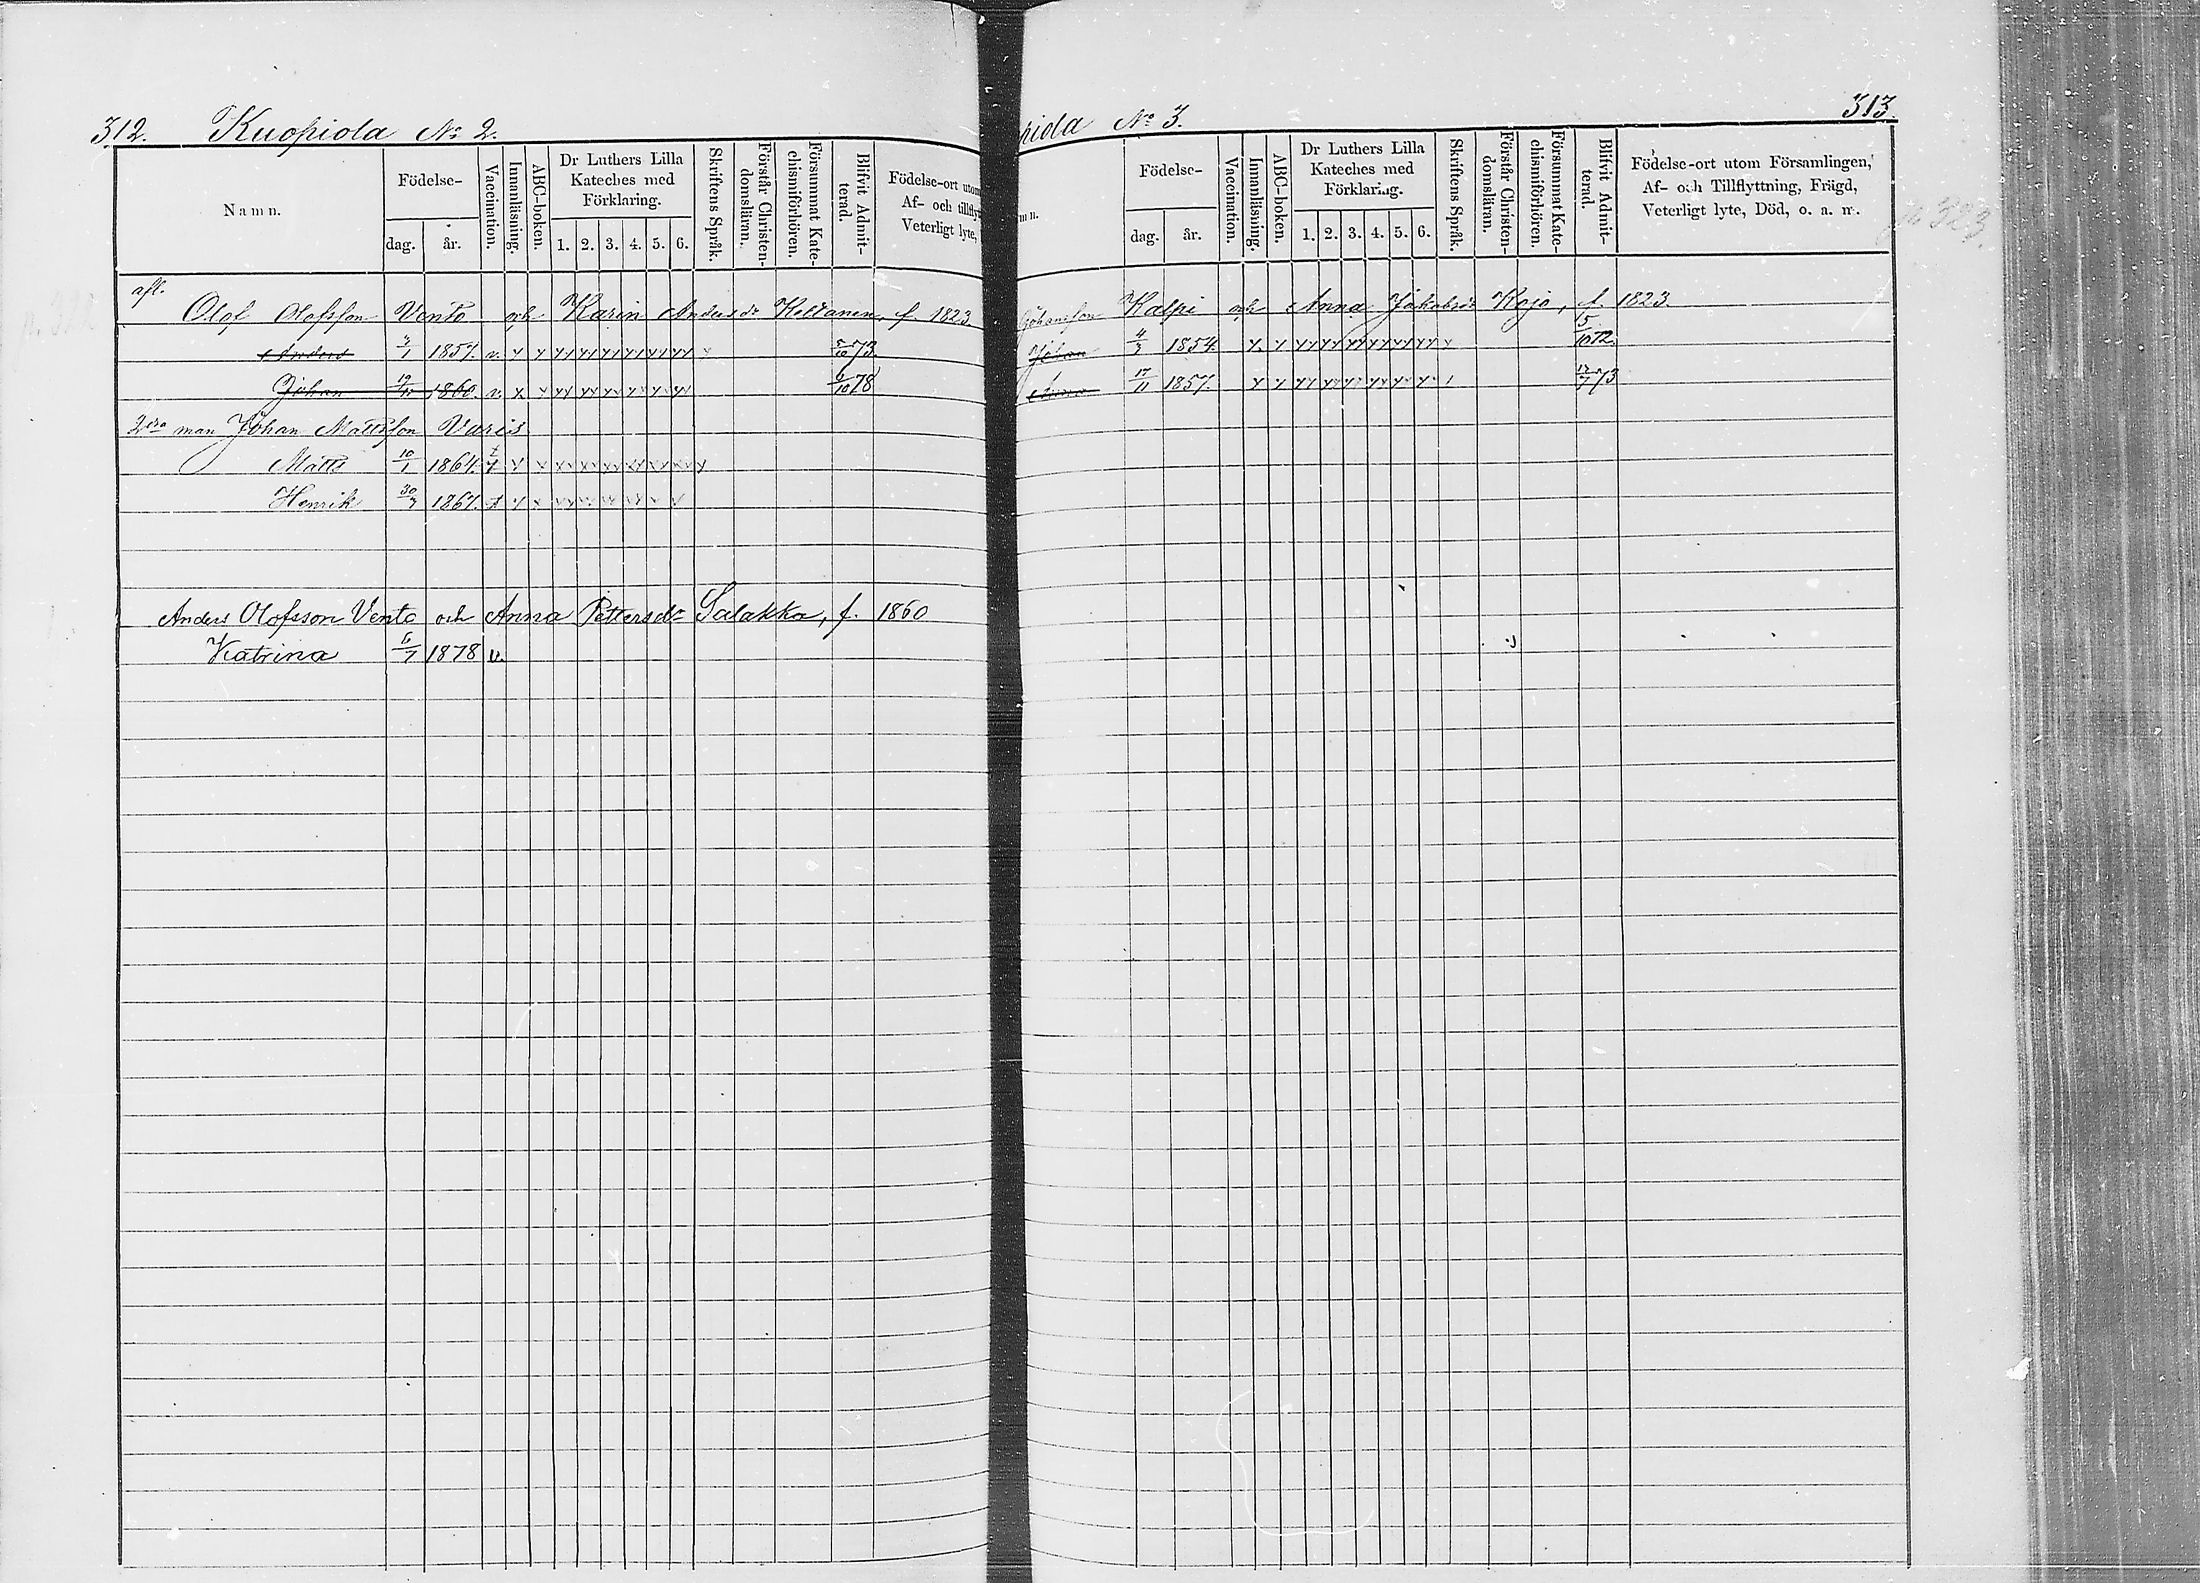 312. Kuopiola No 2.
Namn. Födelse- dag. år. Vaccination. Innanläsning. ABC-boken. Dr Luthers Lilla Kateches med Förklaring. 1. 2. 3. 4. 5. 6. Skriftens Språk. Förstår Christen-domsläran. Försummat Kate-chismiförhören. Blifvit Admit-terad. Födelse-ort utom Af- och tillflyt Veterligt lyte,
afl.
Olof Olofsson Vento och Karin Andersdr Keltanen, f. 1823.
Anders 1857. v. x x xx xx xx xx xx xx x 5/10 73
Johan 1860. v. x x xx xx xx xx x xx 6/10 78
2dra man Johan Mattsson Varis
Matts 10/1 1864. x x xx xx xx xx xx xx x
Henrik 30/7 1867. x x xx xx xx xx x x
Anders Olofsson Vento och Anna Pettersdr Salakka, f. 1860
Katrina 6/7 1878 v.
piola No 3. 313.
mn. Födelse- dag. år. Vaccination. Innanläsning. ABC-boken. Dr Luthers Lilla Kateches med Förklaring. 1. 2. 3. 4. 5. 6. Skriftens Språk. Förstår Christen-domsläran. Försummat Kate-chismiförhören. Blifvit Admit-terad. Födelse-ort utom Församlingen, Af- och Tillflyttning, Frägd, Veterligt lyte, Död, o. a. m.
323.
Johansson Kalpi och Anna Jakobsdr Kojo, f. 1823
Johan 4/3 1854. x. x xx xx xx xx xx xx x 15/10 72.
Anna 17/11 1857. x x xx xx xx xx x x 12/7 73